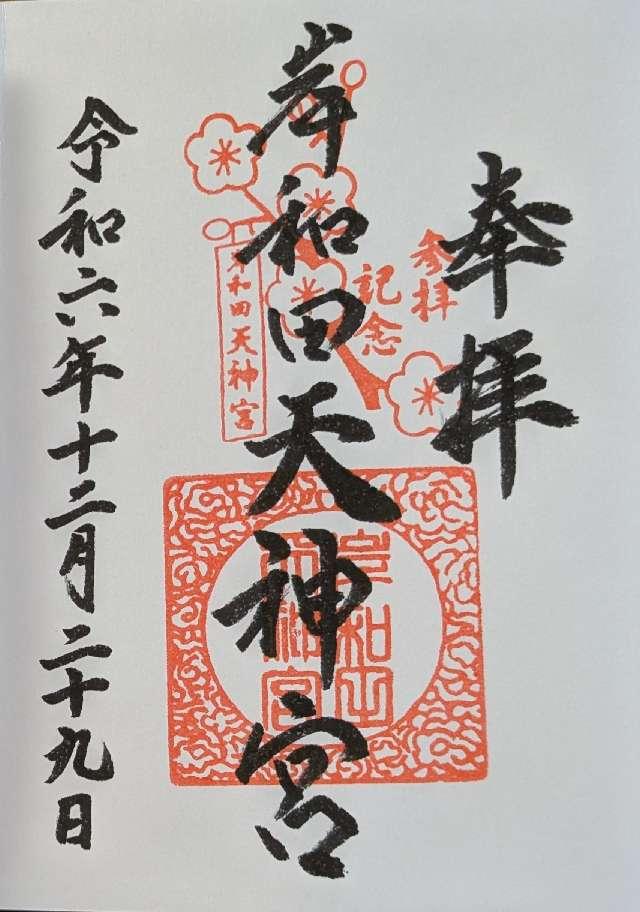 奉拝
参拝
記念
岸和田天神宮
岸和田天神宮
岸和田
天神宮
令和六年十二月二十九日